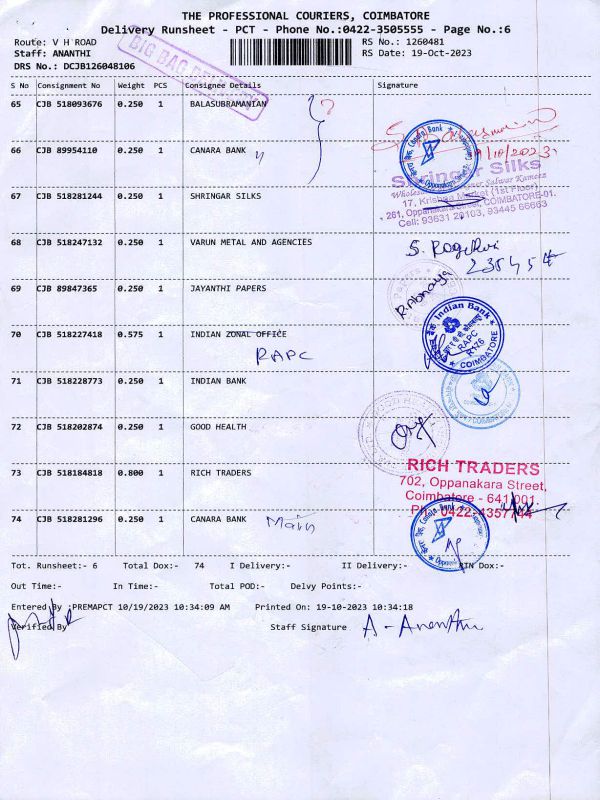 THE PROFESSIONAL COURIERS, COIMBATORE
Delivery Runsheet - PCT - Phone No.:0422-3505555 - Page No.:6
Route: V H ROAD
RS No.: 1260481
Staff: ANANTHI
RS Date: 19-Oct-2023
DRS No.: DCJB126048106
BIG BAG
S No Consignment No Weight PCS Consignee Details Signature
65 CJB 518093676 0.250 1 BALASUBRAMANIAN ?
66 CJB 89954110 0.250 1 CANARA BANK
Canara Bank
/10/2023
Shringar Silks
17, Krishna Market (1st Floor)
261, Oppanakara Street, COIMBATORE-01.
Cell: 93631 29103, 93445 66663
67 CJB 518281244 0.250 1 SHRINGAR SILKS
68 CJB 518247132 0.250 1 VARUN METAL AND AGENCIES
69 CJB 89847365 0.250 1 JAYANTHI PAPERS
R.Abinaya
Indian Bank
RAPC
COIMBATORE
70 CJB 518227418 0.575 1 INDIAN ZONAL OFFICE
RAPC
71 CJB 518228773 0.250 1 INDIAN BANK
72 CJB 518202874 0.250 1 GOOD HEALTH
73 CJB 518184818 0.800 1 RICH TRADERS
RICH TRADERS
702, Oppanakara Street,
Coimbatore - 641 001.
74 CJB 518281296 0.250 1 CANARA BANK Main
Canara Bank
Tot. Runsheet:- 6 Total Dox:- 74 I Delivery:- II Delivery:- Dox:-
Out Time:- In Time:- Total POD:- Delvy Points:-
Entered By :PREMAPCT 10/19/2023 10:34:09 AM Printed On: 19-10-2023 10:34:18
Verified By Staff Signature A-Ananthi